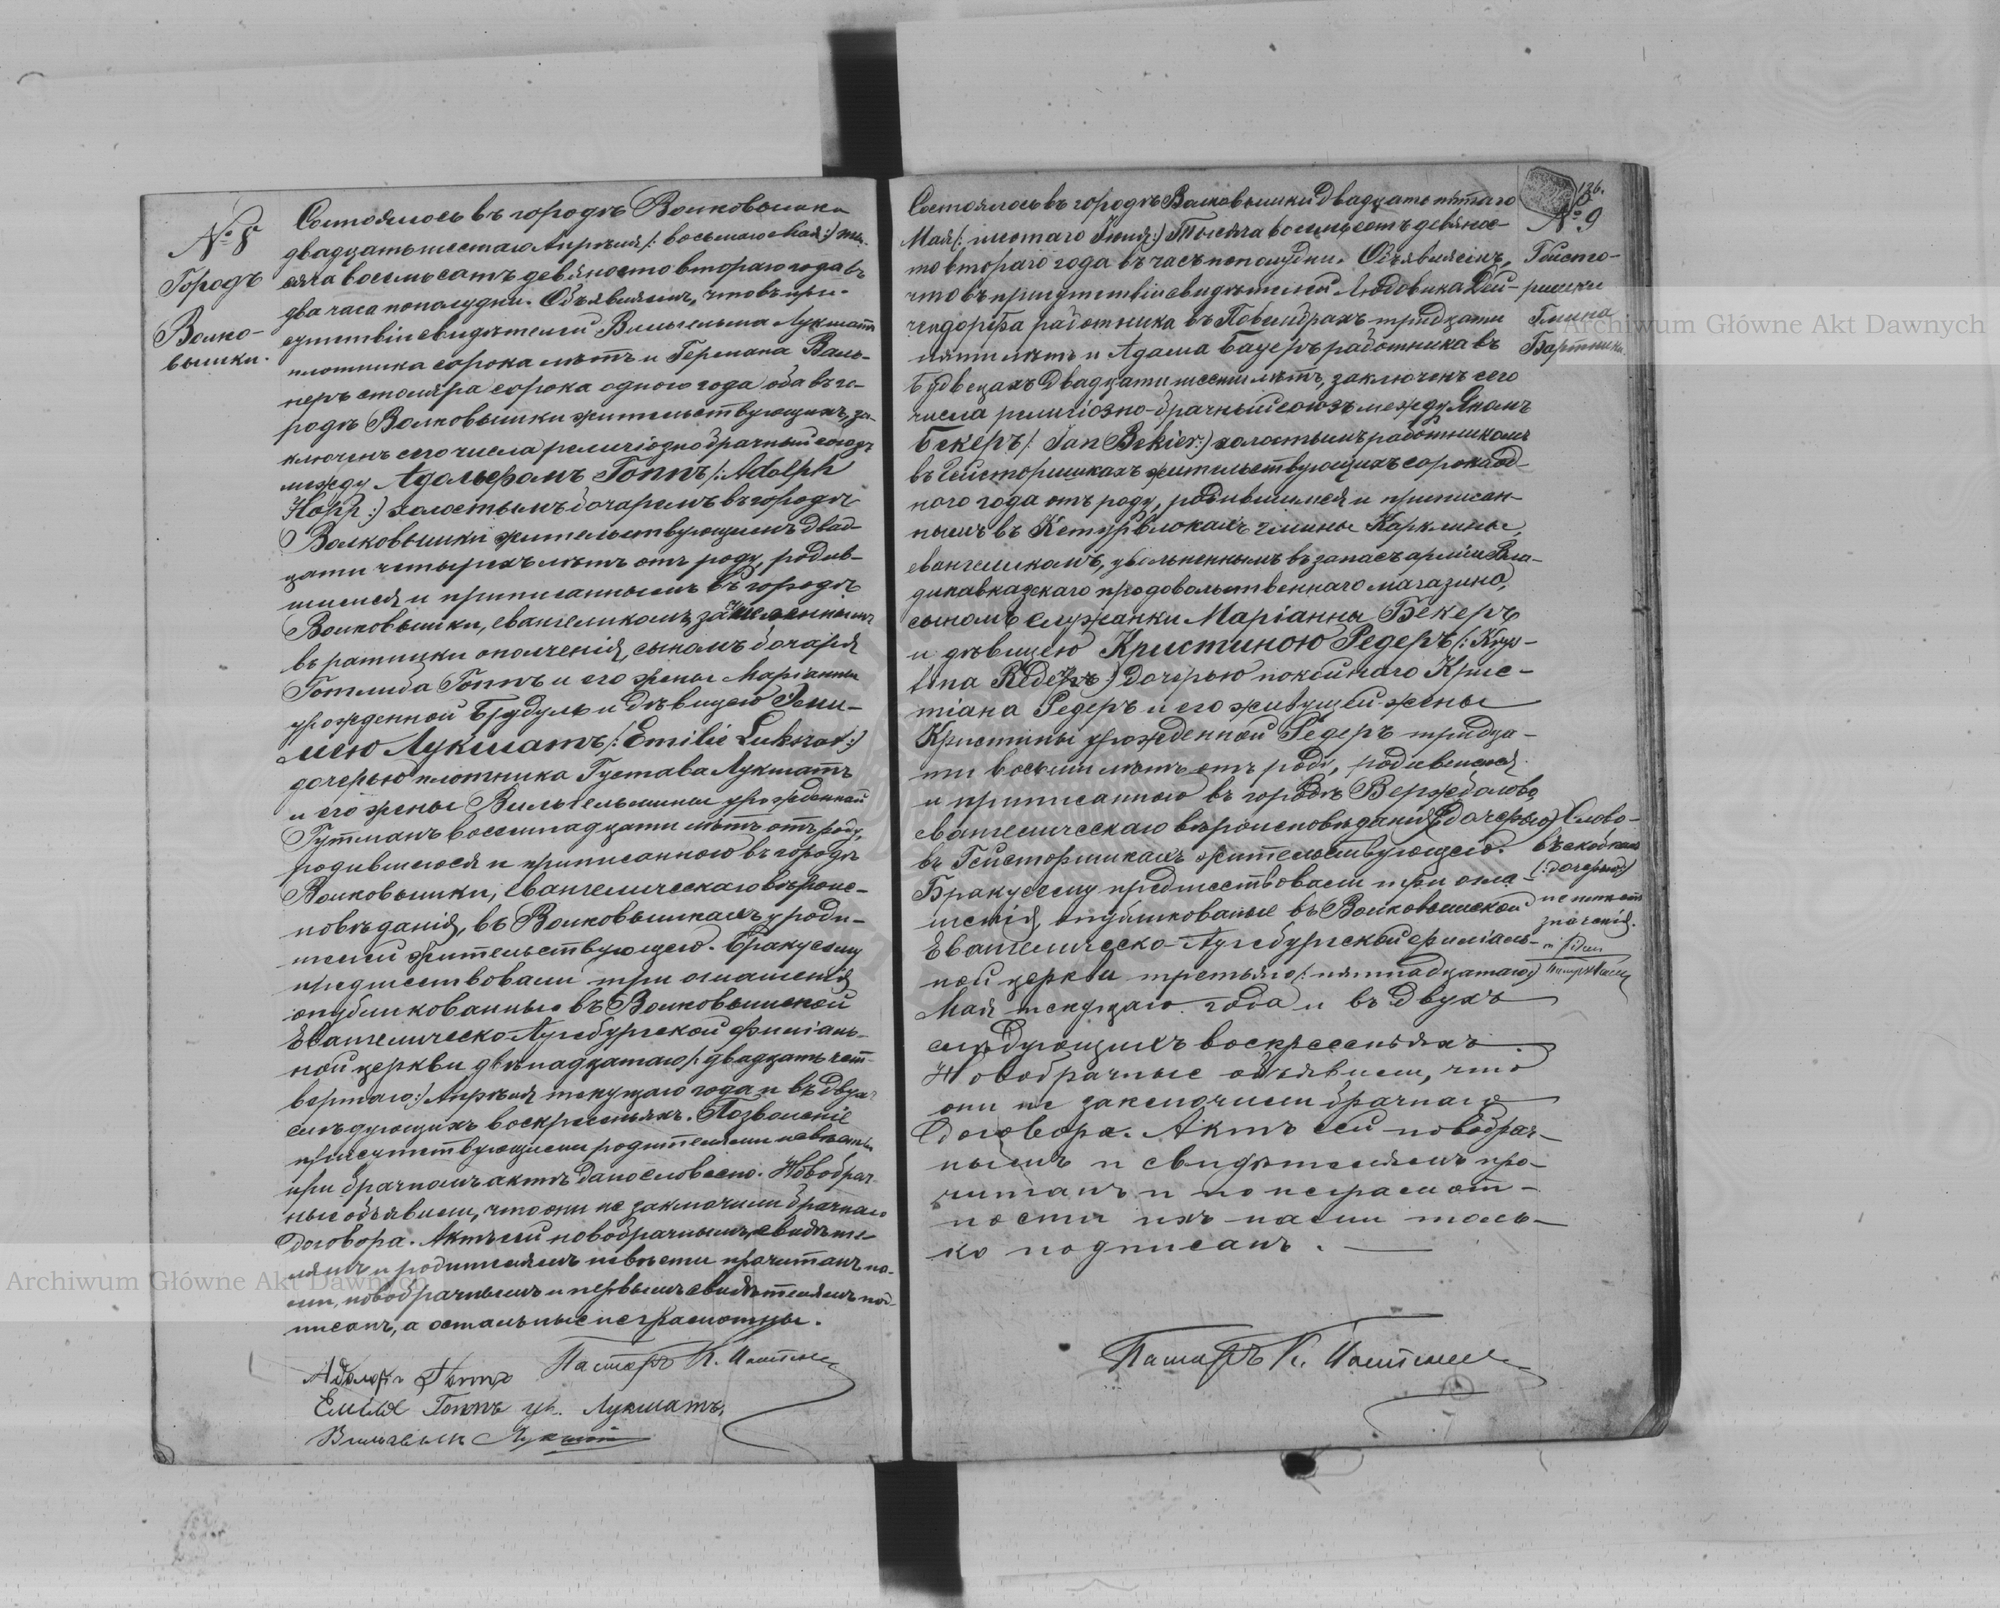 № 8
Городъ
Волко-
вышки.
Состоялось въ городѣ Волковышки
двадцать шестаго Апрѣля /: восьмаго Мая :/ ты-
сяча восемьсотъ девяносто втораго года въ
два часа пополудни. Объявляемъ, что въ при-
сутствіи свидѣтелей Вильгельма Лукшатъ
плотника сорока лѣтъ и Германа Валь-
неръ столяра сорока одного года оба въ го-
родѣ Волковышки жительствующихъ, за-
ключенъ сего числа религіозно брачный союзъ
между Адольфомъ Гоппъ /: Adolph
Hopp :/ холостымъ бочаремъ въ городѣ
Волковышки жительствующемъ двад-
цати четырехъ лѣтъ отъ роду, родив-
шимся и приписаннымъ въ городѣ
Волковышки, евангеликомъ, зачисленнымъ
въ ратники ополченія, сыномъ бочаря
Готлиба Гоппъ и его жены Маріанны
урожденной Будуль и дѣвицею Эми-
лію Лукшатъ /: Emilie Lukszat :/
дочерью плотника Густава Лукшатъ
и его жены Вильгельмины урожденной
Гутманъ восемнадцати лѣтъ отъ роду,
родившеюся и приписанною въ городѣ
Волковышки, Евангелическаго вѣроис-
повѣданія, въ Волковышкахъ у роди-
телей жительствующею. Браку сему
предшествовали три оглашенія
опубликованные въ Волковышской
Евангелическо-Аугсбургской филіаль-
ной церкви двѣнадцатаго /: двадцать чет-
вертаго :/ Апрѣля текущаго года и въ двухъ
слѣдующихъ воскресеньяхъ. Позволеніе
присутствующими родителями невѣсты
при брачномъ актѣ дано словесно. Новобрач-
ные объявили, что они не заключили брачнаго
договора. Актъ сей новобрачнымъ, свидѣте-
лямъ и родителямъ невѣсты прочитанъ на-
ми, новобрачнымъ и первымъ свидѣтелемъ под-
писанъ, а остальные неграмотны.
Адольфъ Гоппъ Пасторъ К.
Емілія Гоппъ ур. Лукшатъ,
Вильгельм Лукшат
126.
№ 9
Гейсто-
ришки
Гмина
Бартники.
Состоялось въ городѣ Волковышки двадцать пятаго
Мая /: шестаго Іюня :/ Тысяча восемьсотъ девянос-
то втораго года въ часъ пополудни. Объявляемъ,
что въ присутствіи свидѣтелей Людовика Дей-
чендорфа работника въ Повембрахъ тридцати
пяти лѣтъ и Адама Бауеръ работника въ
Будвецахъ двадцати шести лѣтъ, заключенъ сего
числа религіозно-брачный союзъ между Яномъ
Бекеръ /: Jan Bekier :/ холостымъ работникомъ
въ Гейсторишкахъ жительствующимъ сорока од-
ного года отъ роду, родившимся и приписан-
нымъ въ Кетурвлокахъ гмины Карклины,
евангеликомъ, увольненнымъ въ запасъ арміи Вла-
дикавказскаго продовольственнаго магазина,
сыномъ служанки Маріанны Бекеръ
и дѣвицею Кристиною Редеръ /: Krys-
tina Redeръ :/ дочерью покойнаго Крис-
тіана Редеръ и его живущей жены
Кристины урожденной Редеръ тридца-
ти восьми лѣтъ отъ роду, родившеюся
и приписанною въ городѣ Вержболово,
Евангелическаго вѣроисповѣданія (дочерью)
въ Гейсторишкахъ жительствующею.
Браку сему предшествовали три огла-
шенія, опубликованые въ Волковышской
Евангелическо-Аугсбургской филіаль-
ной церкви третьяго /: пятнадцатаго :/
Мая текущаго года и въ двухъ
слѣдующихъ воскресеньяхъ.
Новобрачные объявили, что
они не заключили брачнаго
договора. Актъ сей новобрач-
нымъ и свидѣтелямъ про-
читанъ и по неграмот-
ности ихъ нами толь-
ко подписанъ.
Слово-
въ скобкахъ
(: дочерью)
не имѣетъ
значенія.
Пасторъ К.
Archiwum Główne Akt Dawnych
Archiwum Główne Akt Dawnych